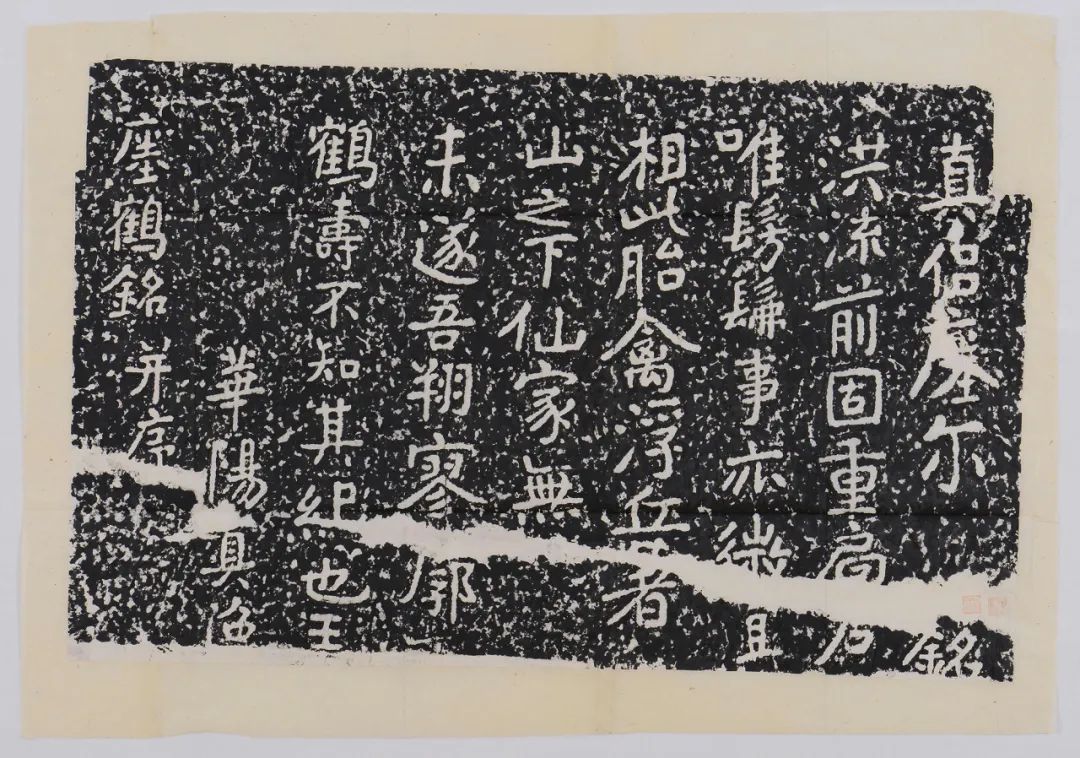 瘞鶴銘 并序
華陽真
鶴壽不知其紀也壬
未遂吾翔寥廓
山之下仙家無
相此胎禽浮丘著
唯髣髴事亦微
洪流前固重扃
真侶瘞爾 銘